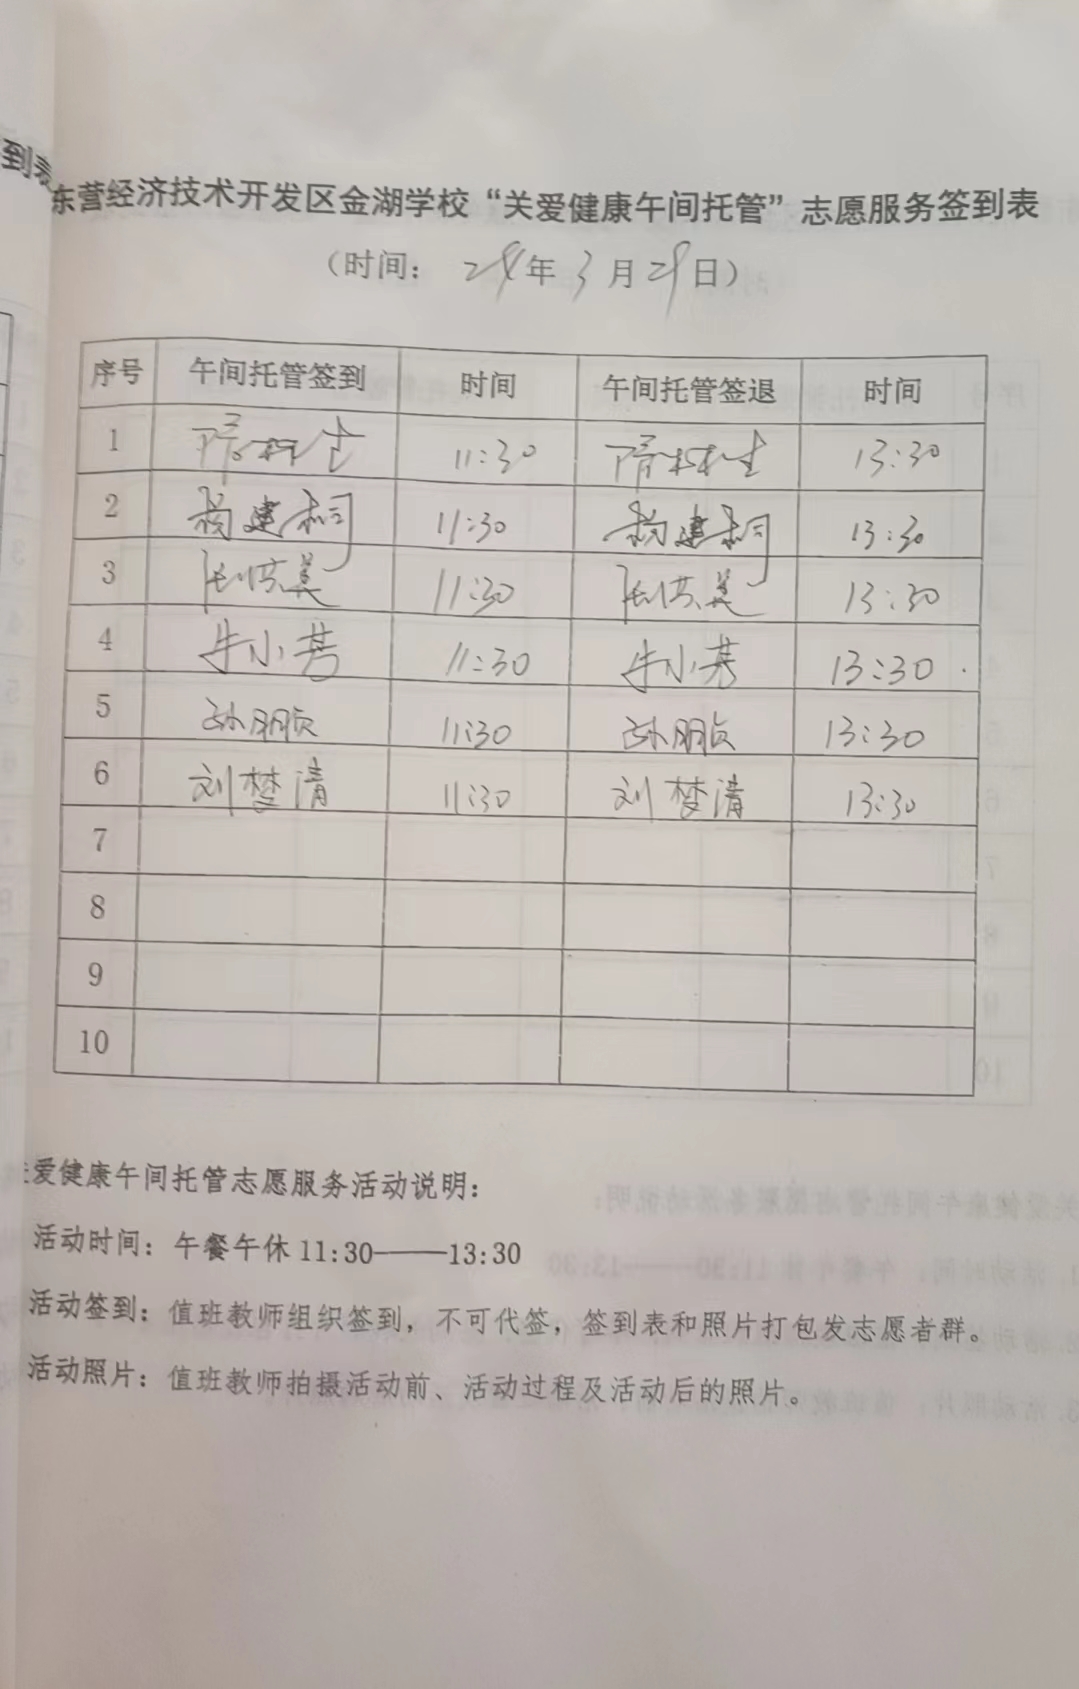 到表
东营经济技术开发区金湖学校“关爱健康午间托管”志愿服务签到表
（时间： 24年3月29日）
序号 午间托管签到 时间 午间托管签退 时间
1 11:30 13:30
2 杨建桐 11:30 杨建桐 13:30
3 11:30 13:30
4 牛小芳 11:30 牛小芳 13:30
5 孙朋贞 11:30 孙朋贞 13:30
6 刘梦清 11:30 刘梦清 13:30
7
8
9
10
爱健康午间托管志愿服务活动说明：
活动时间：午餐午休 11:30——13:30
活动签到：值班教师组织签到，不可代签，签到表和照片打包发志愿者群。
活动照片：值班教师拍摄活动前、活动过程及活动后的照片。